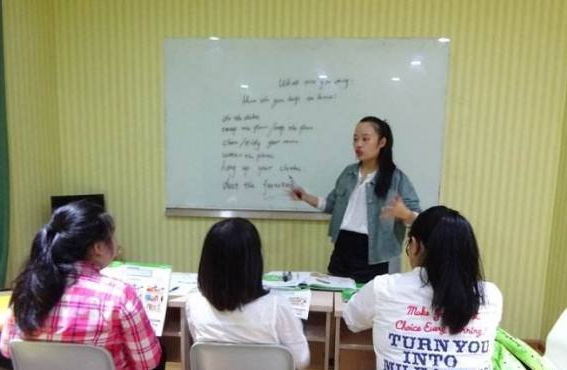 What are you doing?
How do you help at home?
do the dishes
sweep the floor / mop the floor
clean / tidy your room
water the plants
hang up your clothes
dust the furniture
Make
Choice Every
TURN YOU
INTO